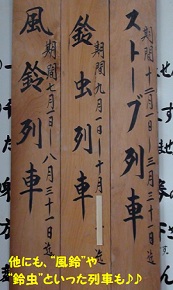 期間十二月一日～三月三十一日迄
ストーブ列車
期間九月一日～十月 迄
鈴虫列車
期間七月一日～八月三十一日迄
風鈴列車
他にも、“風鈴”や
“鈴虫”といった列車も♪♪